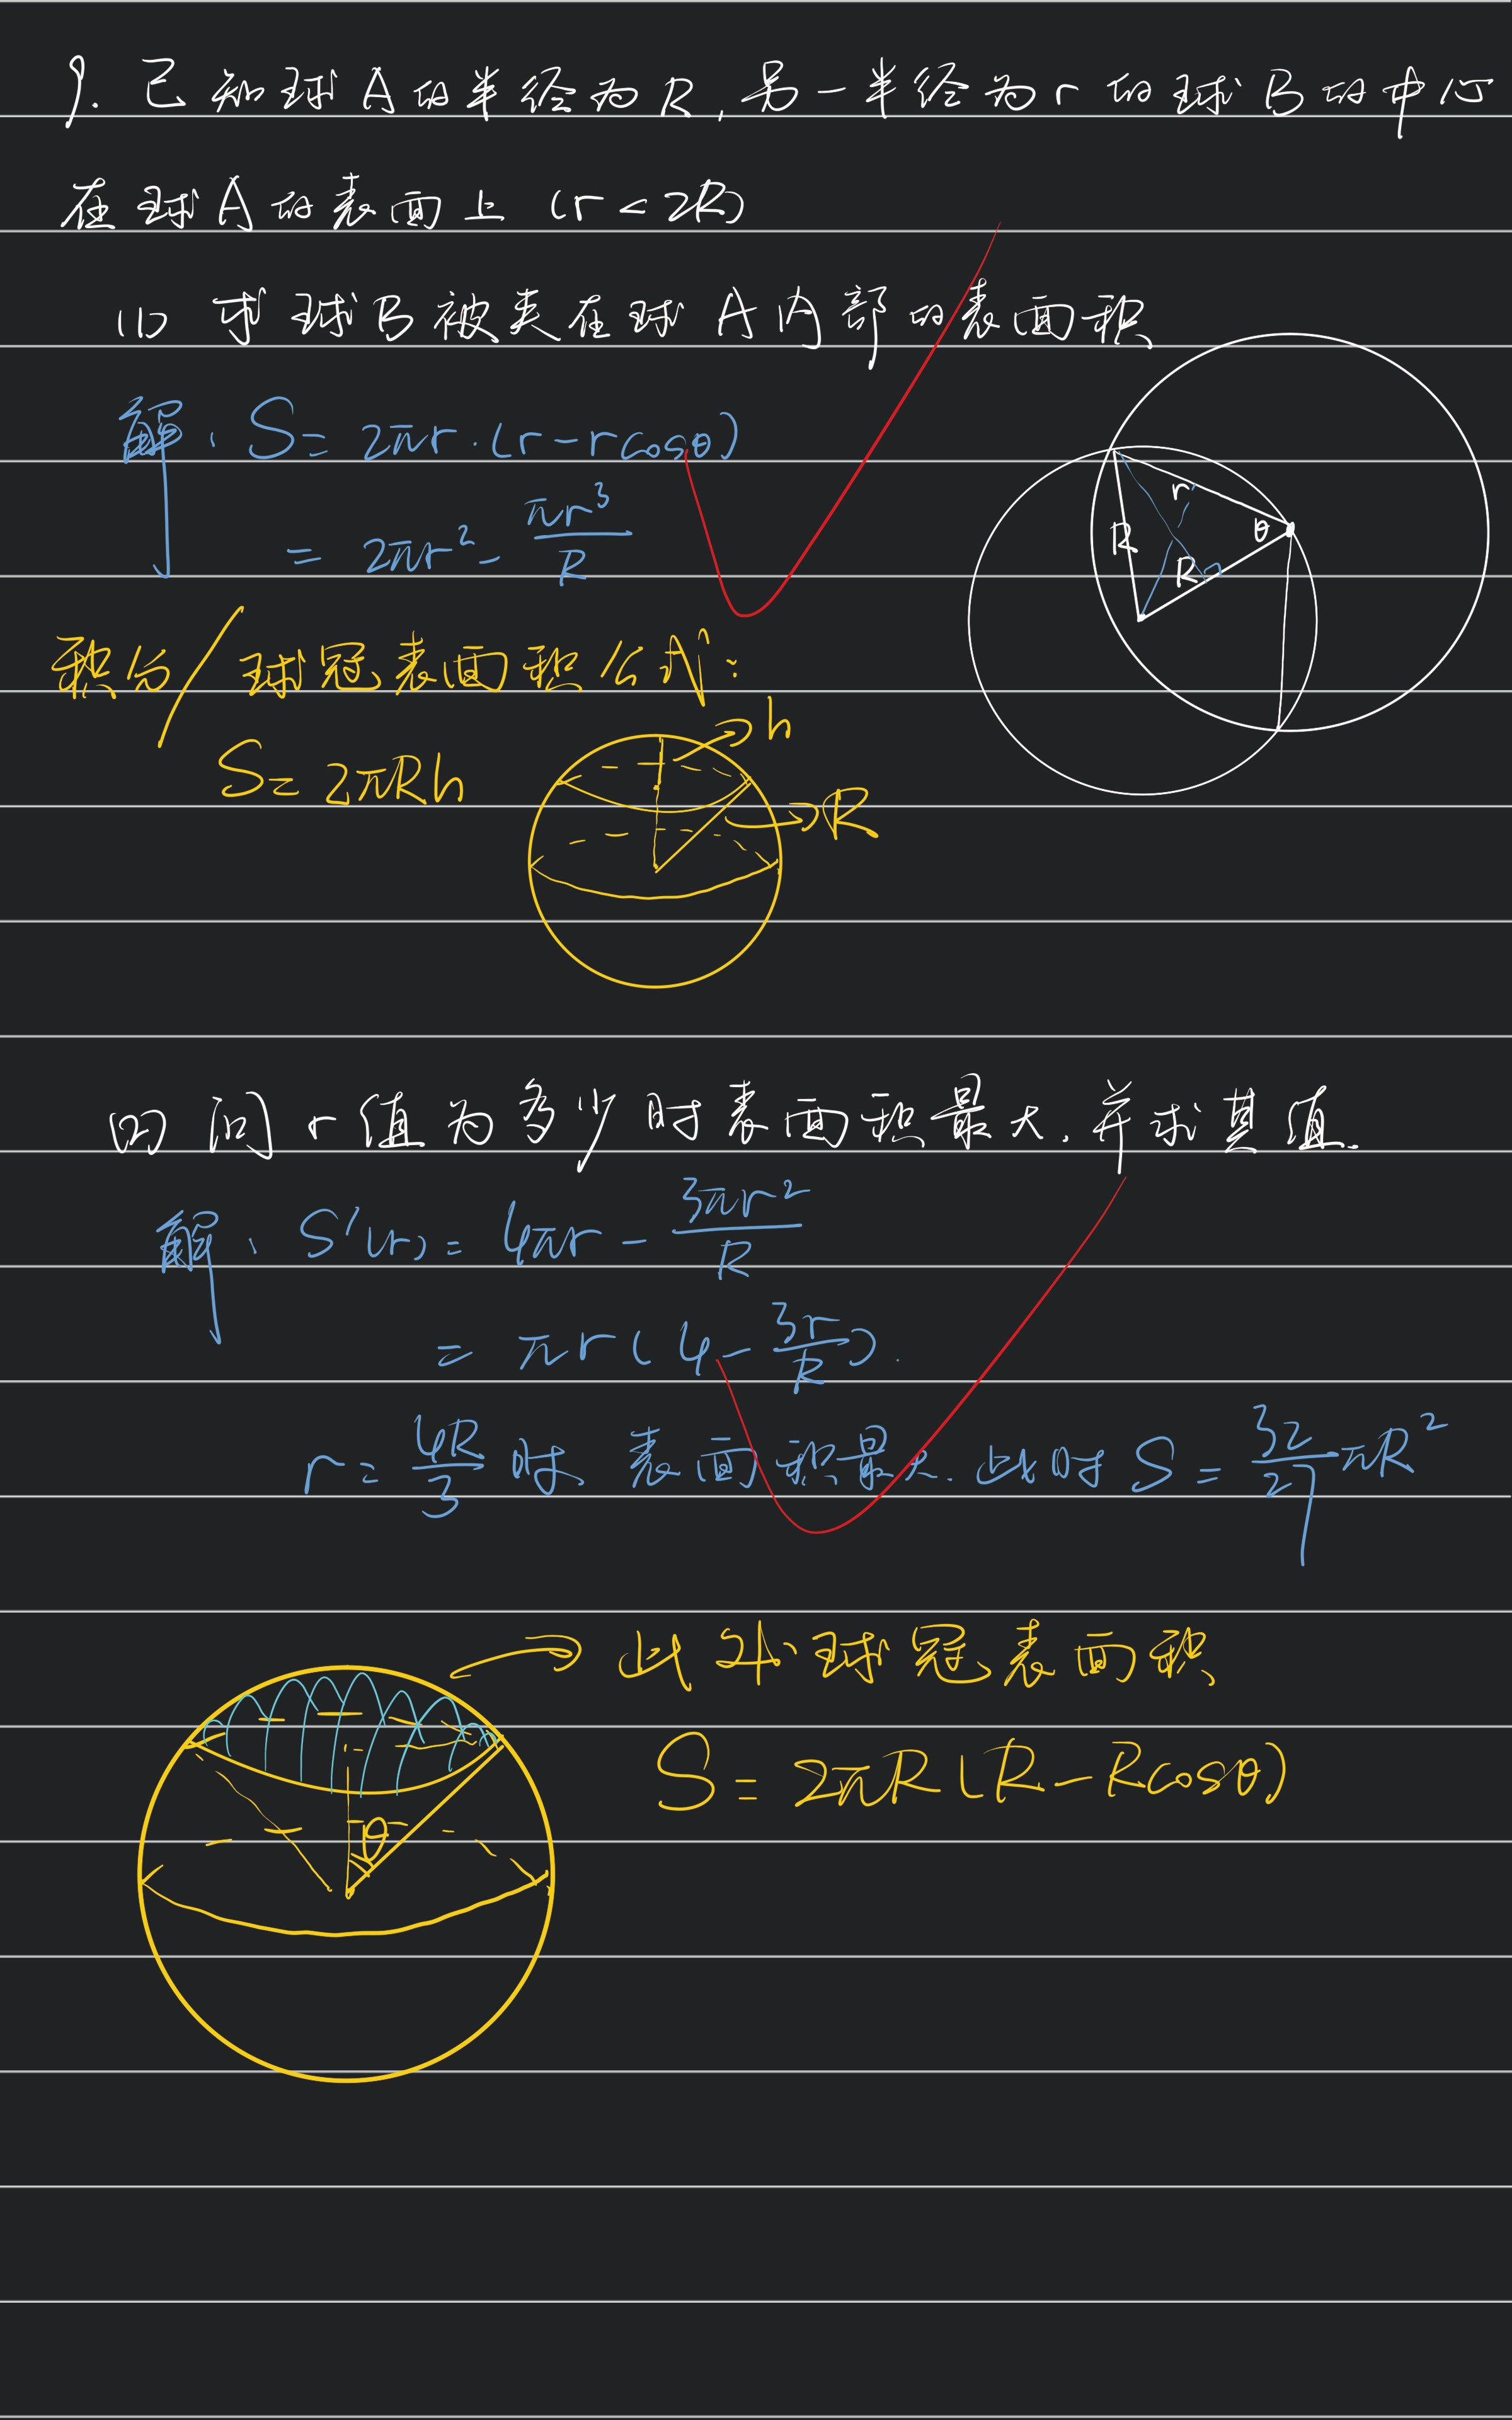 9. 已知球A的半径为R,另一半径为r的球B的中心
在球A的表面上 (r<2R)
(1) 求球B被夹在球A内部的表面积
解: S = 2πr·(r-rcosθ)
= 2πr² - πr³/R
r
θ
R
R
积分/球冠表面积公式:
h
S = 2πRh
R
(2) 问r值为多少时表面积最大,并求其值.
解: S'(r) = 4πr - 3πr²/R
= πr(4 - 3r/R).
r = 4R/3 时,表面积最大.此时 S = 32/27 πR²
此外球冠表面积
S = 2πR(R-Rcosθ)
θ